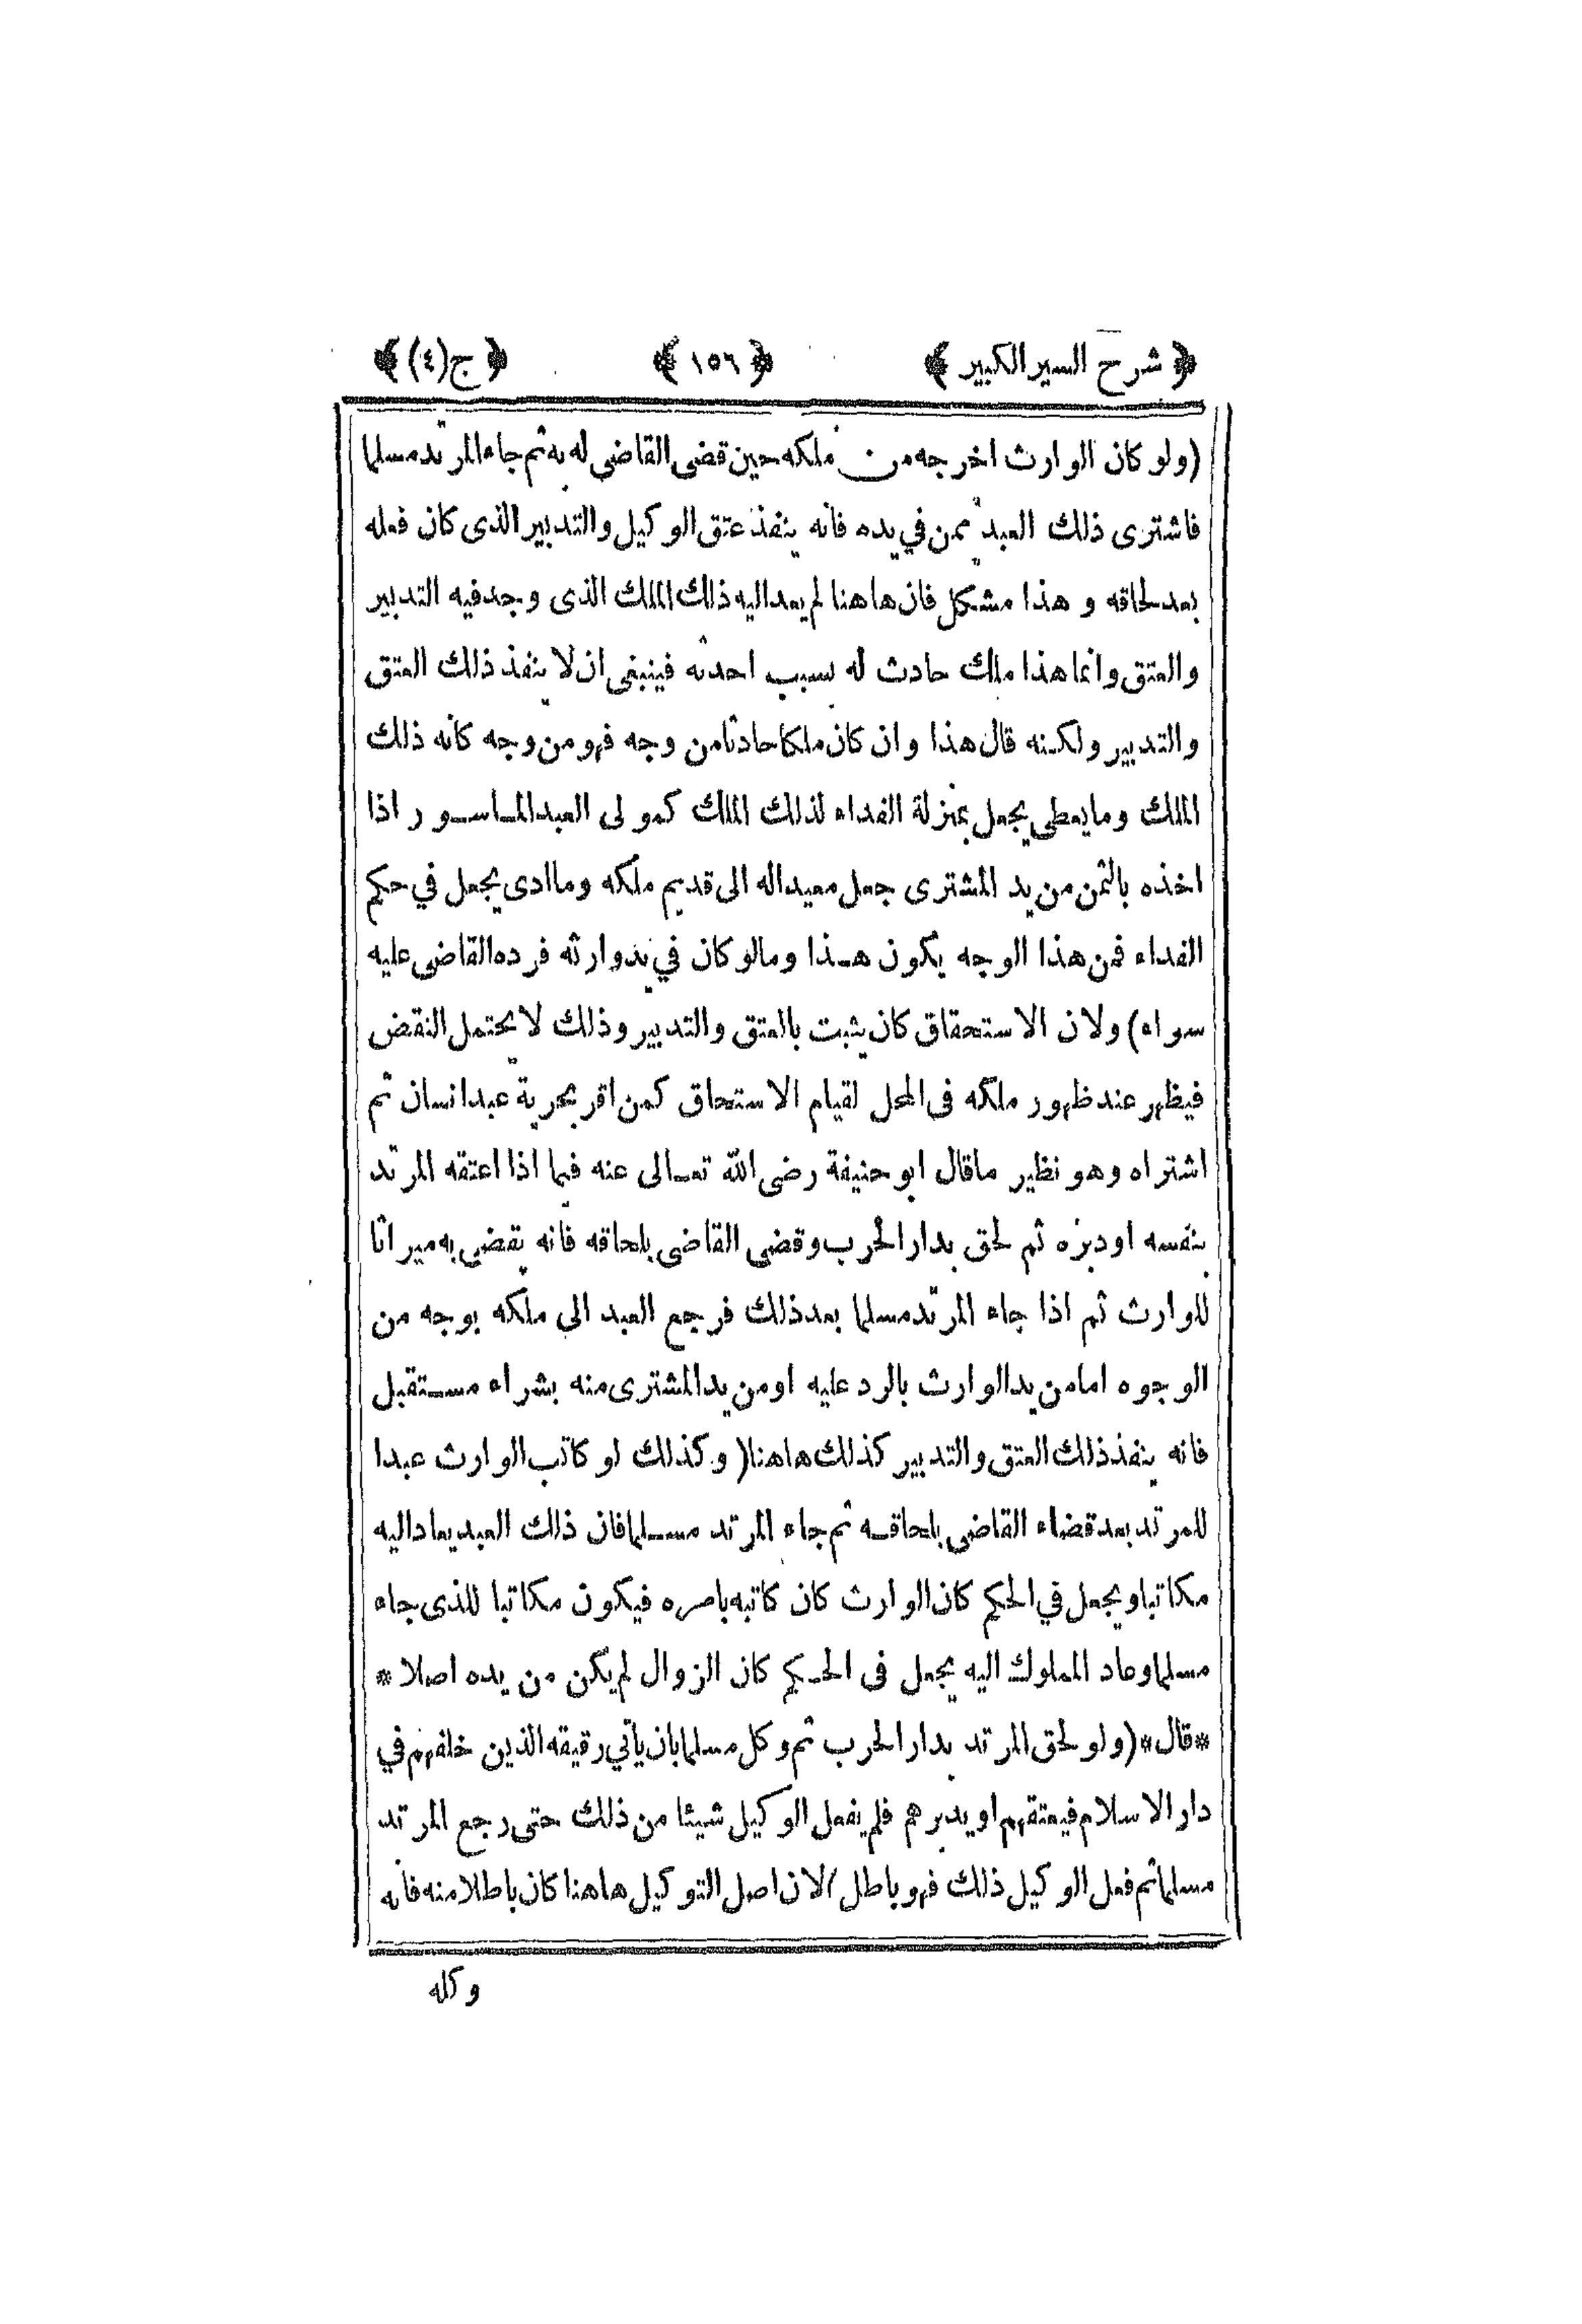 ﴿ شرح السير الكبير ﴾ ﴿ ١٥٦ ﴾ ﴿ ج (٤) ﴾
(ولو كان الوارث اخرجه من ملكه حين قضى القاضى له به ثم جاء المرتد مسلما
فاشترى ذلك العبد ممن في يده فانه ينفذ عتق الوكيل والتدبير الذى كان فعله
بعد لحاقه و هذا مشكل فان هاهنا لم يعد اليه ذلك الملك الذى وجد فيه التدبير
والعتق وانما هذا ملك حادث له بسبب احدثه فينبغى ان لا ينفذ ذلك العتق
والتدبير ولكنه قال هذا وان كان ملكا حادثا من وجه فهو من وجه كانه ذلك
الملك وما يعطى يجعل بمنزلة الفداء لذلك الملك كمولى العبد الماسور اذا
اخذه بالثمن من يد المشترى جعل معيدا له الى قديم ملكه وما ادى يجعل في حكم
الفداء فمن هذا الوجه يكون هذا ومالو كان في يد وارثه فرده القاضى عليه
سواء) ولان الاستحقاق كان يثبت بالعتق والتدبير وذلك لا يحتمل النقض
فيظهر عند ظهور ملكه فى المحل لقيام الاستحاق كمن اقر بحرية عبد انسان ثم
اشتراه وهو نظير ماقال ابو حنيفة رضى الله تعالى عنه فيما اذا اعتقه المرتد
بنفسه او دبره ثم لحق بدار الحرب وقضى القاضى بلحاقه فانه يقضى به ميراثا
للوارث ثم اذا جاء المرتد مسلما بعد ذلك فرجع العبد الى ملكه بوجه من
الوجوه اما من يد الوارث بالرد عليه او من يد المشترى منه بشراء مستقبل
فانه ينفذ ذلك العتق والتدبير كذلك هاهنا (وكذلك لو كاتب الوارث عبدا
للمرتد بعد قضاء القاضى بلحاقه ثم جاء المرتد مسلما فان ذلك العبد يعاد اليه
مكاتبا ويجعل في الحكم كان الوارث كان كاتبه بامره فيكون مكاتبا للذى جاء
مسلما وعاد المملوك اليه يجعل فى الحكم كان الزوال لم يكن من يده اصلا *
*قال* (ولو لحق المرتد بدار الحرب ثم وكل مسلما بان ياتي رقيقه الذين خلفهم في
دار الاسلام فيعتقهم او يدبرهم فلم يفعل الوكيل شيئا من ذلك حتى رجع المرتد
مسلما ثم فعل الوكيل ذلك فهو باطل) لان اصل التوكيل هاهنا كان باطلا منه فانه
وكله